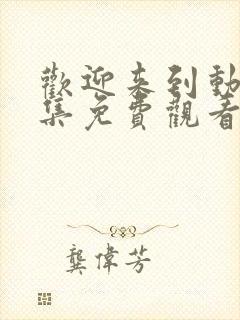 歡迎来到動
集免費觀看
龔偉芳